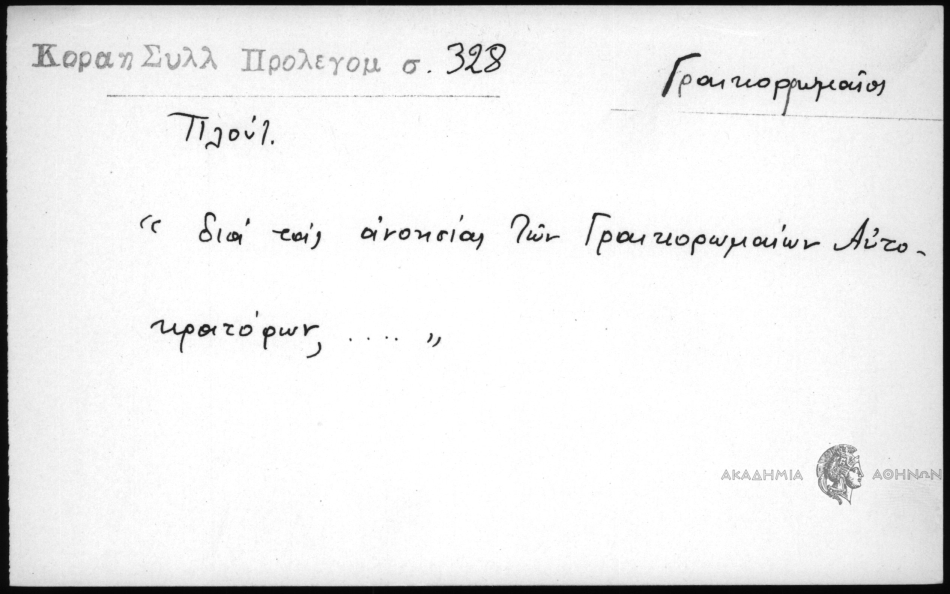 Κοραη Συλλ Προλεγομ σ. 328
Γραικορρωμαῖος
Πλούτ.
“ διά τάς ἀνοησίας τῶν Γραικορωμαίων Αὐτο-
κρατόρων, ..... ”
ΑΚΑΔΗΜΙΑ ΑΘΗΝΩΝ